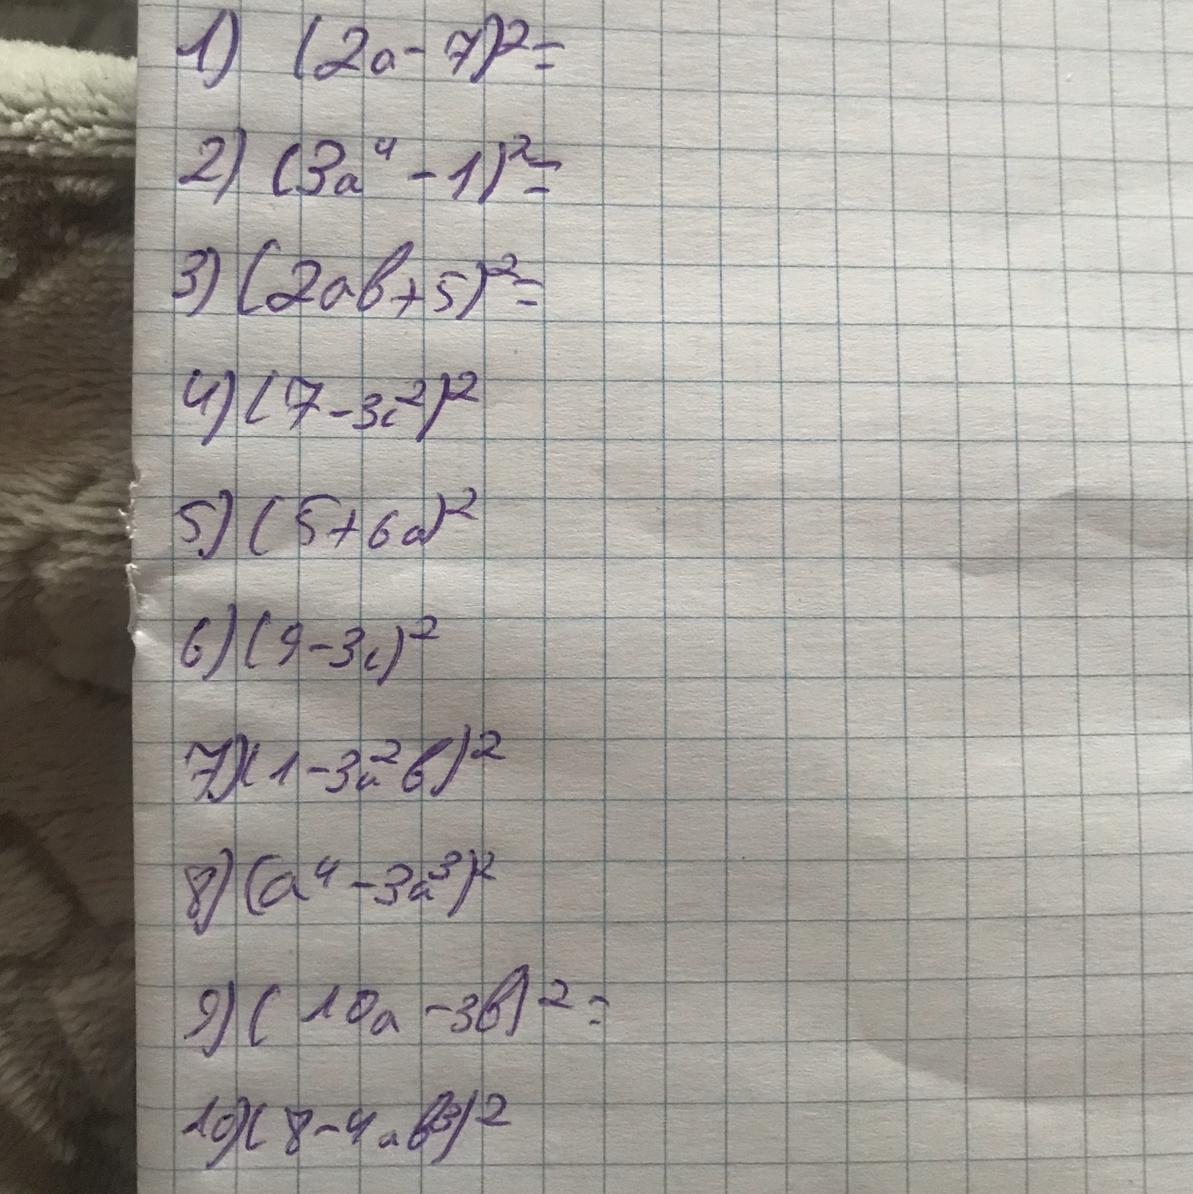 1) (2a - 7)² =
2) (3a⁴ - 1)² =
3) (2ab + 5)² =
4) (7 - 3c²)²
5) (5 + 6a)²
6) (9 - 3c)²
7) (1 - 3a²b)²
8) (a⁴ - 3a³)²
9) (10a - 3b)² =
10) (8 - 4ab³)²